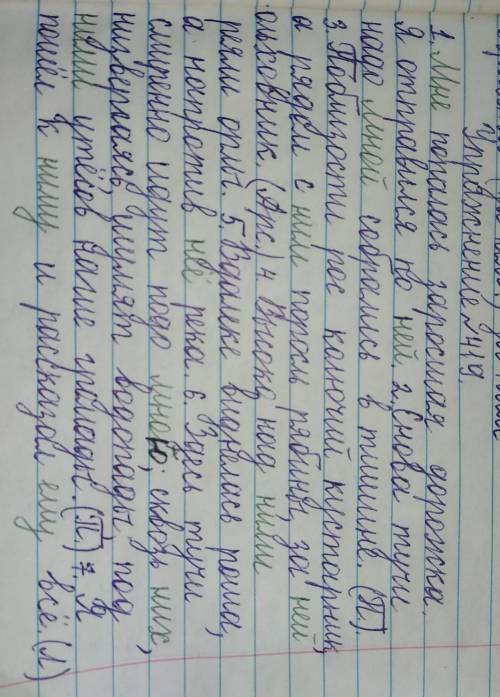 Упражнение №419.
1. Мне попалась заросшая дорожка.
Я отправился по ней. 2. Снова тучи
надо мной собрались в тишине. (П).
3. Поблизости рос колючий кустарник,
а рядом с ним поросль рябины, за ней
ольховник. (Арс.) 4. Высоко над ними
реял орлы. 5. Вдалеке виднелась роща,
а напротив неё река. 6. Здесь тучи
смиренно идут подо мною, сквозь них,
низвергаясь, шумят водопады. под
ними утёсов нагие громады. (П) 7. Я
пошёл к нему и рассказал ему всё. (Л)